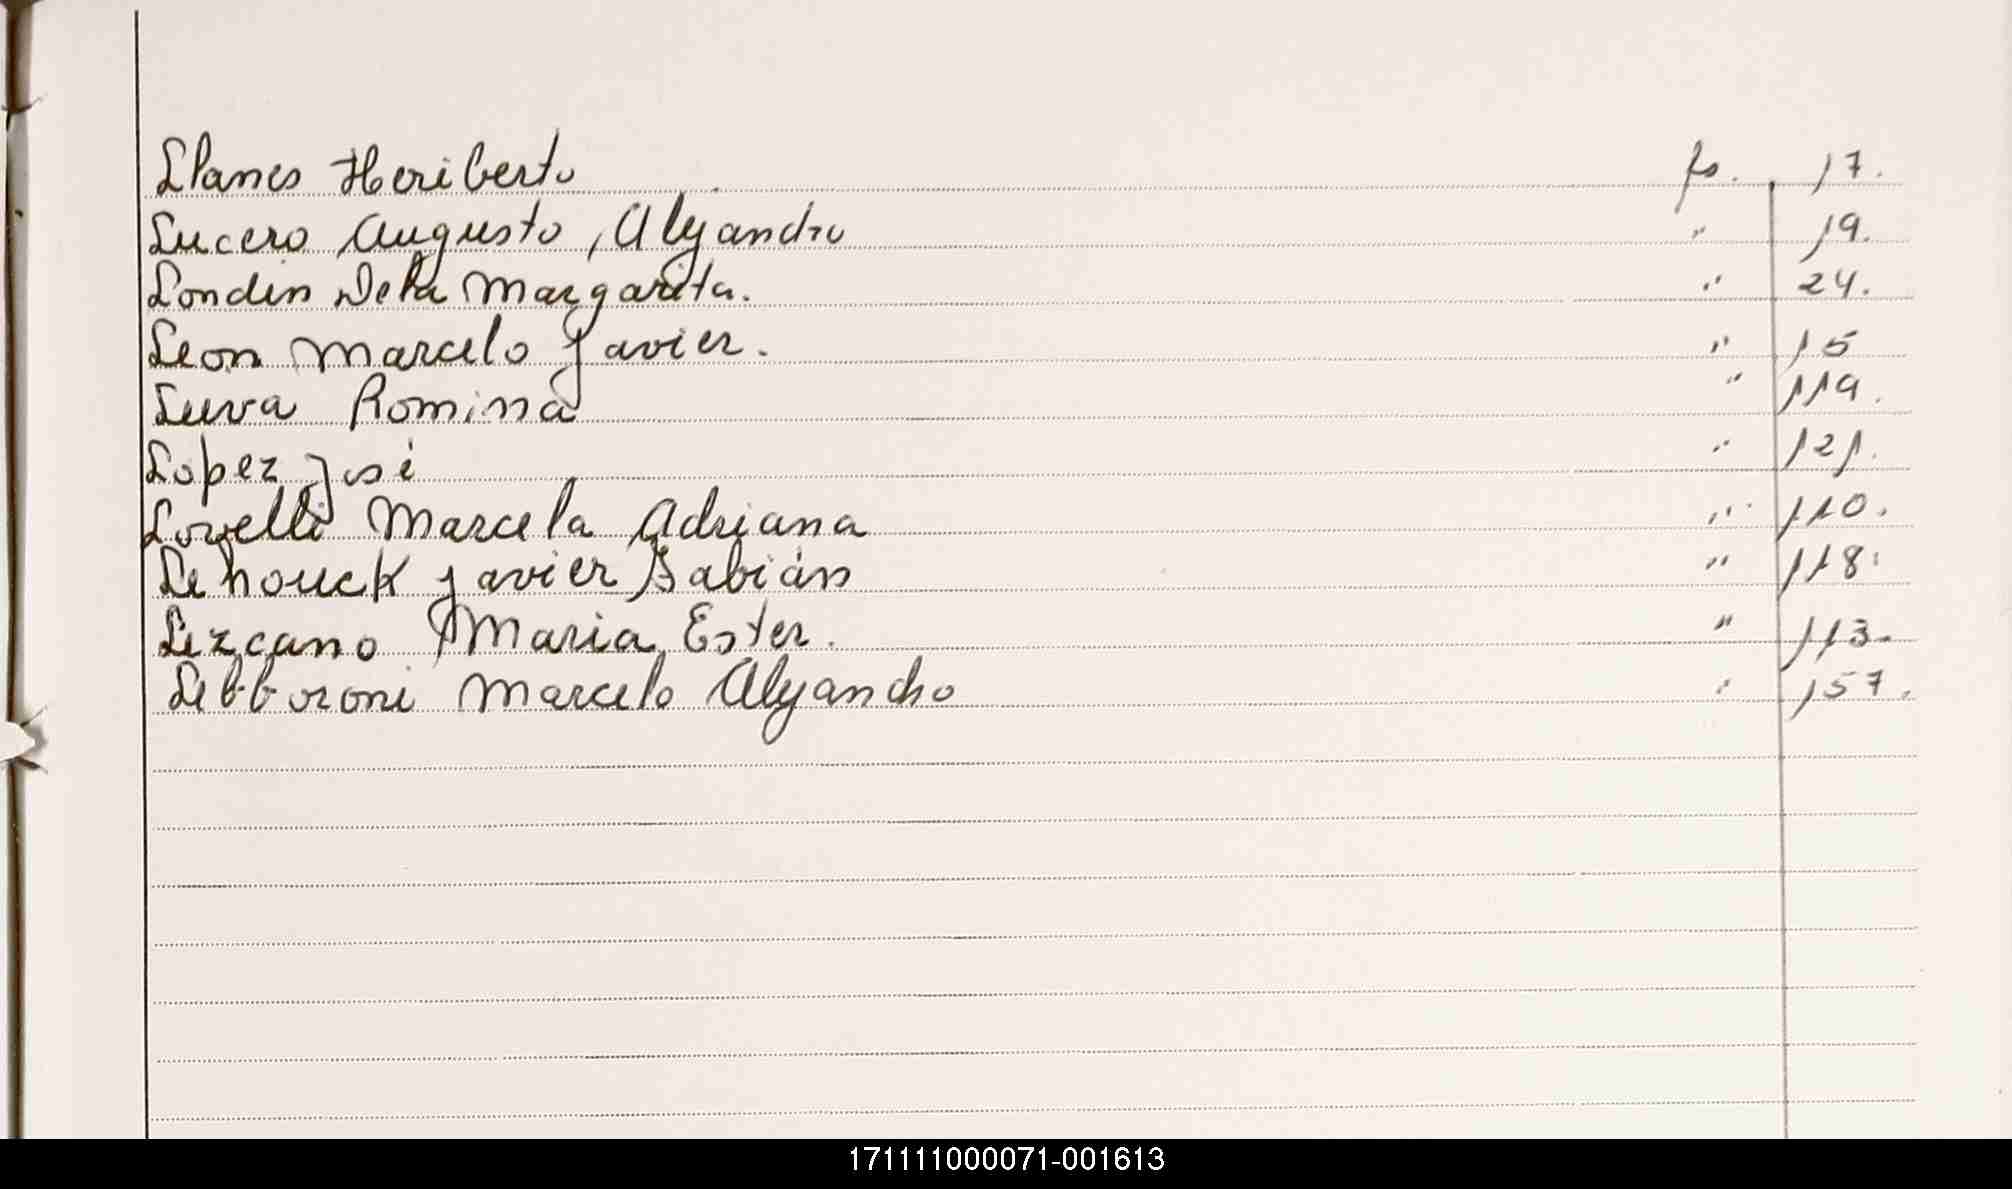 Llanes Heriberto fs. 17.
Lucero Augusto, Alejandro " 19.
Londin Delia Margarita. " 24.
Leon Marcelo Javier. " 15
Romina " 119.
Lopez José " 121.
Lovelli Marcela Adriana " 110.
Lehouck Javier Fabián " 118.
Lezcano Maria Ester. " 113.
Marcelo Alejandro " 157.
171111000071-001613